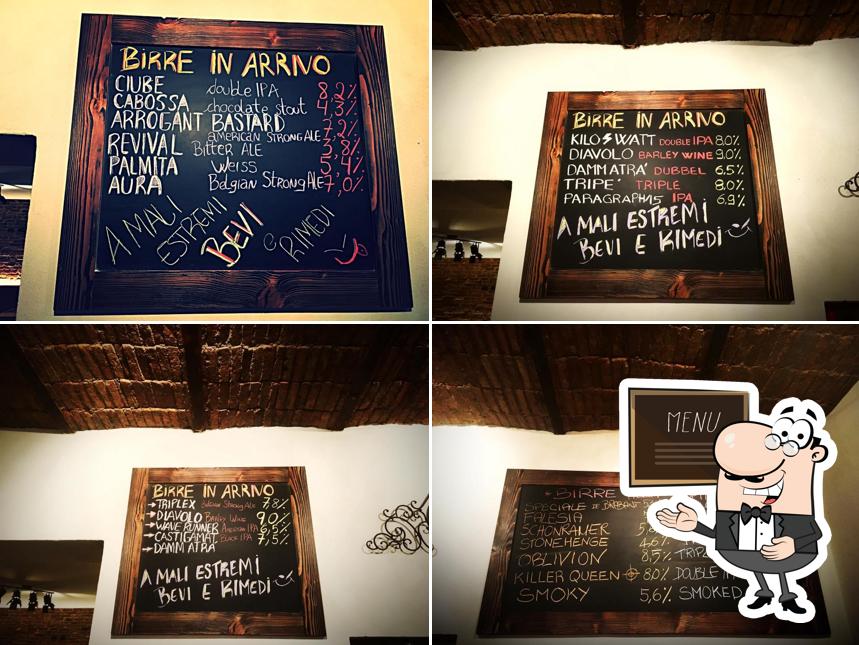 BIRRE IN ARRIVO
CIUBE double IPA 8,2%
CABOSSA chocolate stout 4,3%
ARROGANT BASTARD 7,2%
american STRONG ALE
REVIVAL Bitter ALE 3,8%
PALMITA Weiss 5,4%
AURA Belgian Strong Ale 7,0%
A MALI
ESTREMI
BEVI
e RIMEDI
BIRRE IN ARRIVO
KILOWATT DOUBLE IPA 8.0%
DIAVOLO BARLEY WINE 9.0%
DAMM ATRA' DUBBEL 6.5%
TRIPE' TRIPLE 8.0%
PARAGRAPH15 IPA 6.9%
A MALI ESTREMI
BEVI E RIMEDI
BIRRE IN ARRIVO
TRIPLEX Belgian Strong Ale 7,8%
DIAVOLO Barley Wine 9,0%
WAVE RUNNER American IPA 6,5%
CASTIGAMATT BLACK IPA 7,5%
DAMM ATRA'
A MALI ESTREMI
BEVI E RIMEDI
MENU
BIRRE
SPECIALE
FALESIA
STONEHENGE 4,6%
OBLIVION 8,5% TRIPL
KILLER QUEEN 8,0% DOUBLE
SMOKY 5,6% SMOKED